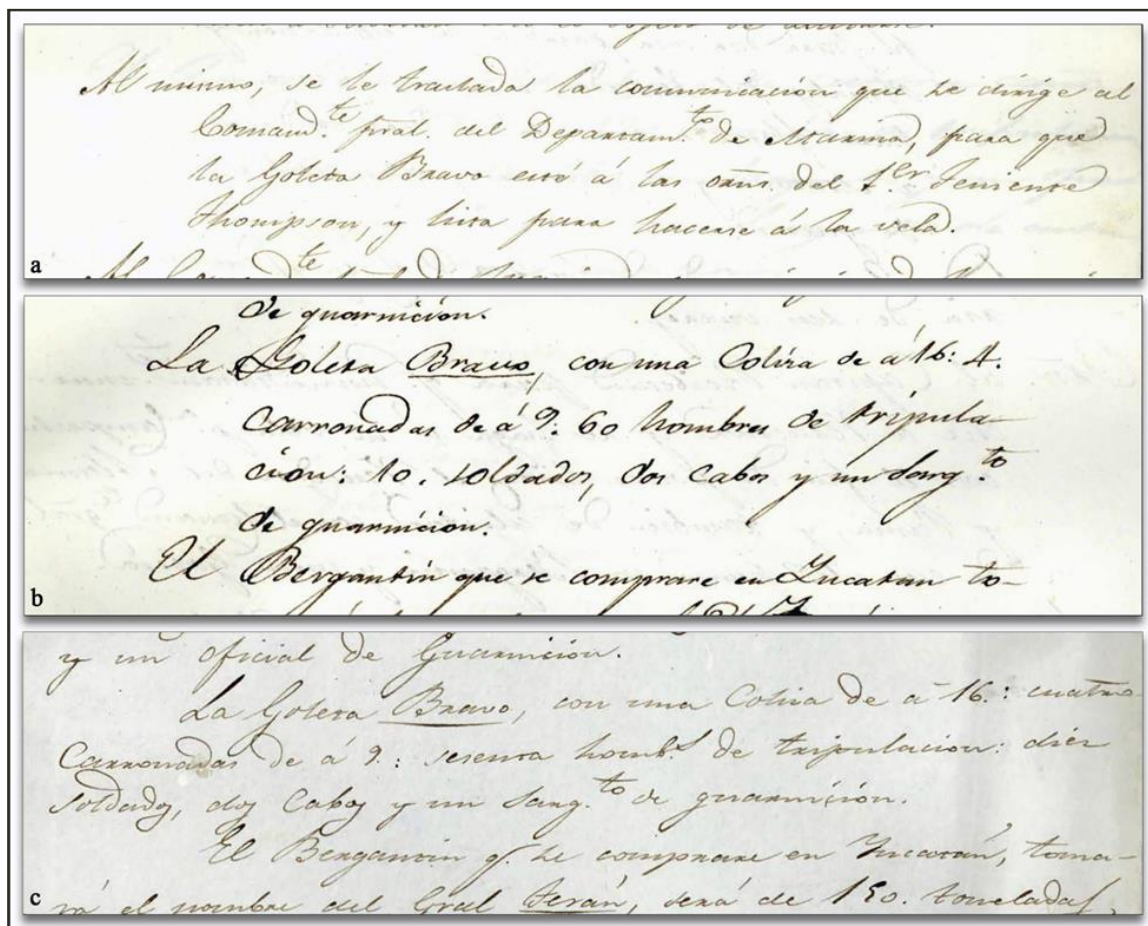 Al mismo, se le traslada la comunicación que se dirige al
Comand.te pral. del Departam.to de Marina, para que
la Goleta Bravo esté á las orns. del 1.er Teniente
Thompson, y lista para hacerse á la vela.
a
de guarnicion.
La Goleta Bravo, con una Colisa de á 16: 4.
carronadas de á 9: 60 hombres de tripula-
cion: 10. soldados, dos cabos y un Sarg.to
de guarnicion.
El Bergantin que se comprare en Yucatan to-
b
y un oficial de Guarnicion.
La Goleta Bravo, con una Colisa de a 16.: cuatro
Carronadas de á 9.: sesenta homb.s de tripulacion: diez
soldados, dos Cabos y un Sarg.to de guarnicion.
El Bergantin q.e se comprare en Yucatán, toma-
rá el nombre del Gral Terán, será de 150. toneladas,
c